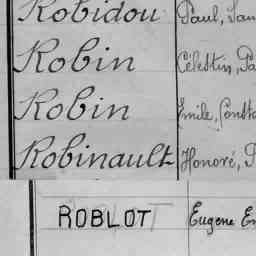 Robidou Paul,
Robin Célestin,
Robin Emile,
Robinault Honoré,
ROBLOT Eugene